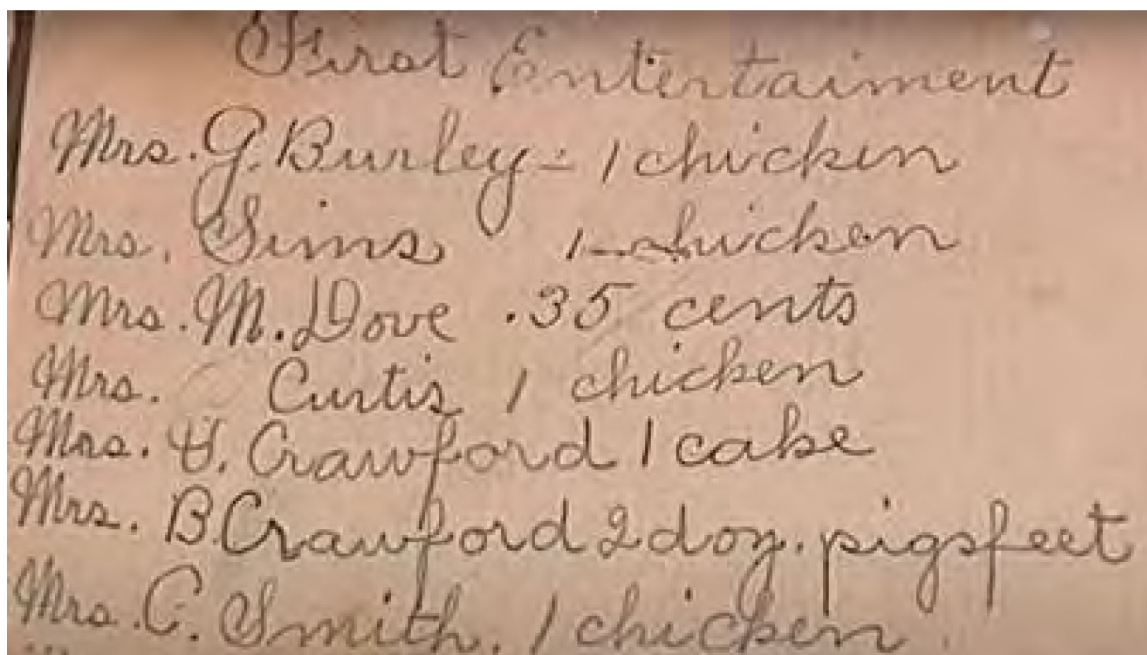 First Entertaiment
Mrs. G. Burley - 1 chicken
Mrs. Sims 1 chicken
Mrs. M. Dove .35 cents
Mrs. Curtis 1 chicken
Mrs. Crawford 1 cake
Mrs. B Crawford 2 doz. pigsfeet
Mrs. C. Smith. 1 chicken